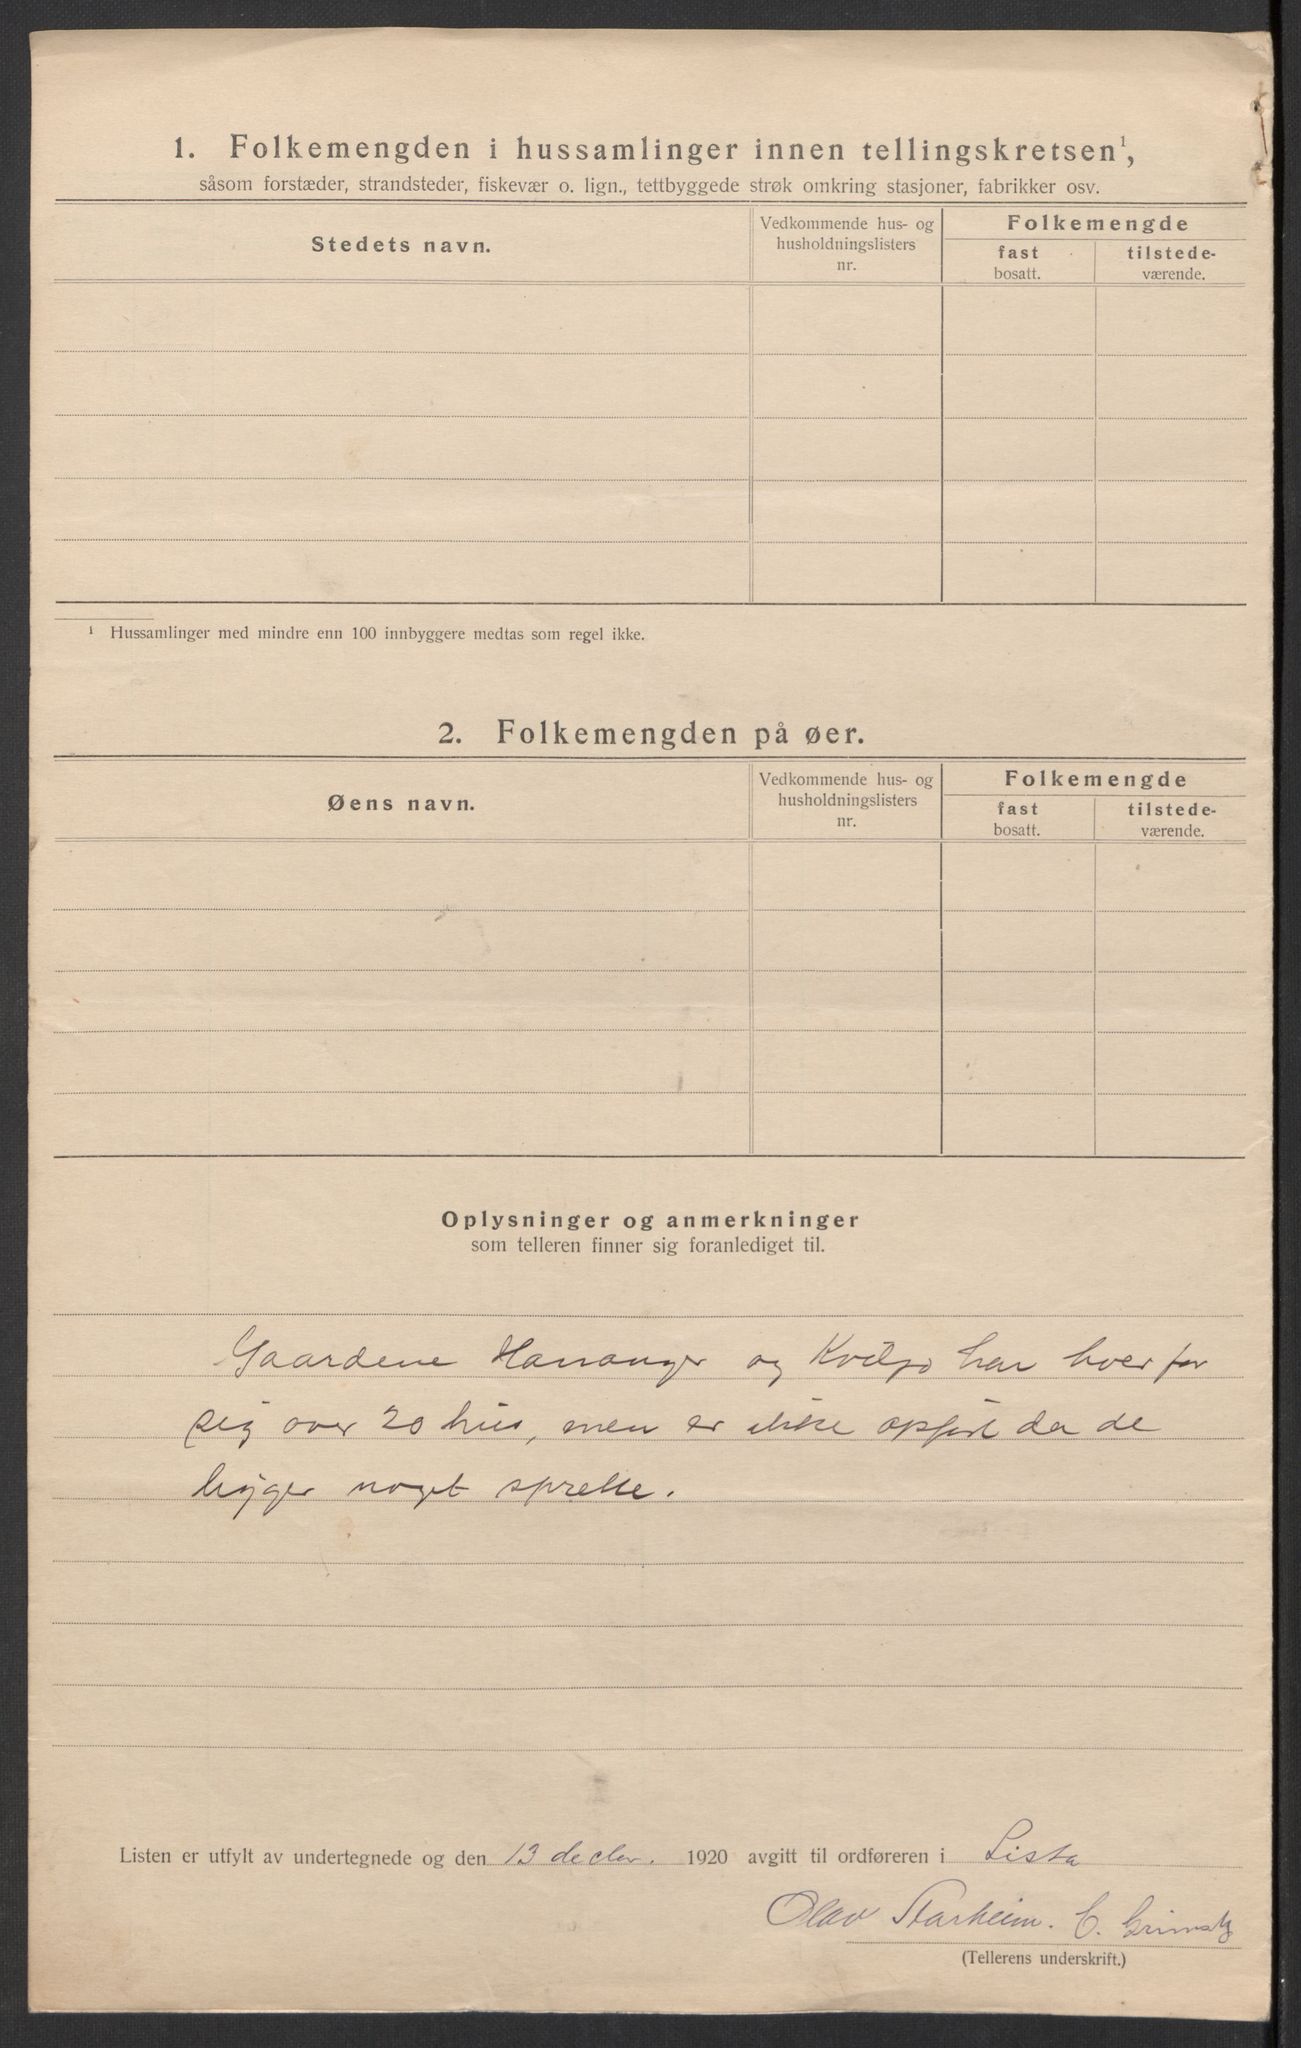 1. Folkemengden i hussamlinger innen tellingskretsen¹,
såsom forstæder, strandsteder, fiskevær o. lign., tettbyggede strøk omkring stasjoner, fabrikker osv.
Stedets navn.
Vedkommende hus- og
husholdningslisters
nr.
Folkemengde
fast
bosatt.
tilstede-
værende.
¹ Hussamlinger med mindre enn 100 innbyggere medtas som regel ikke.
2. Folkemengden på øer.
Øens navn.
Vedkommende hus- og
husholdningslisters
nr.
Folkemengde
fast
bosatt.
tilstede-
værende.
Oplysninger og anmerkninger
som telleren finner sig foranlediget til.
Gaardene Hananger og har hver for
sig over 20 hus, men er ikke opført da de
ligger noget spredte.
Listen er utfylt av undertegnede og den 13 decbr. 1920 avgitt til ordføreren i Lista
Olav Starheim. C.
(Tellerens underskrift.)